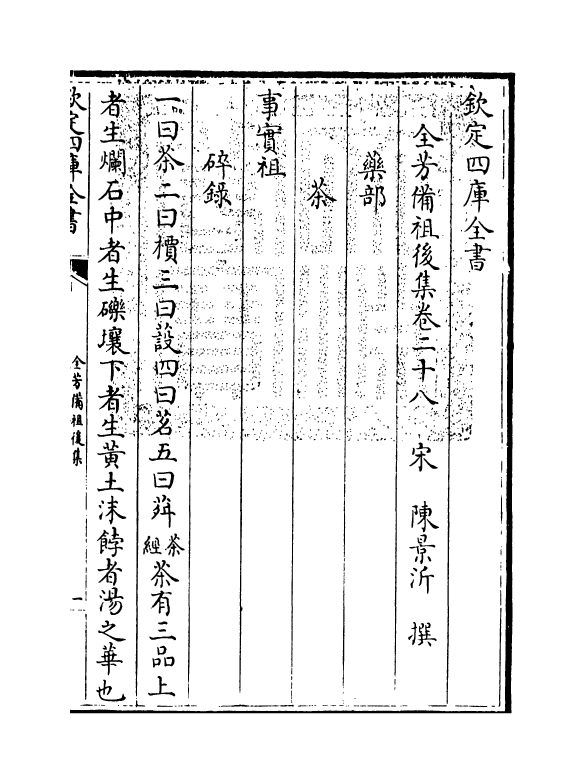 欽定四庫全書
全芳備祖後集卷二十八 宋 陳景沂 撰
藥部
茶
事實祖
碎錄
一曰茶二曰檟三曰設四曰茗五曰荈茶經茶有三品上
者生爛石中者生礫壤下者生黄土沫餑者湯之華也
欽定四庫全書
全芳備祖後集
一